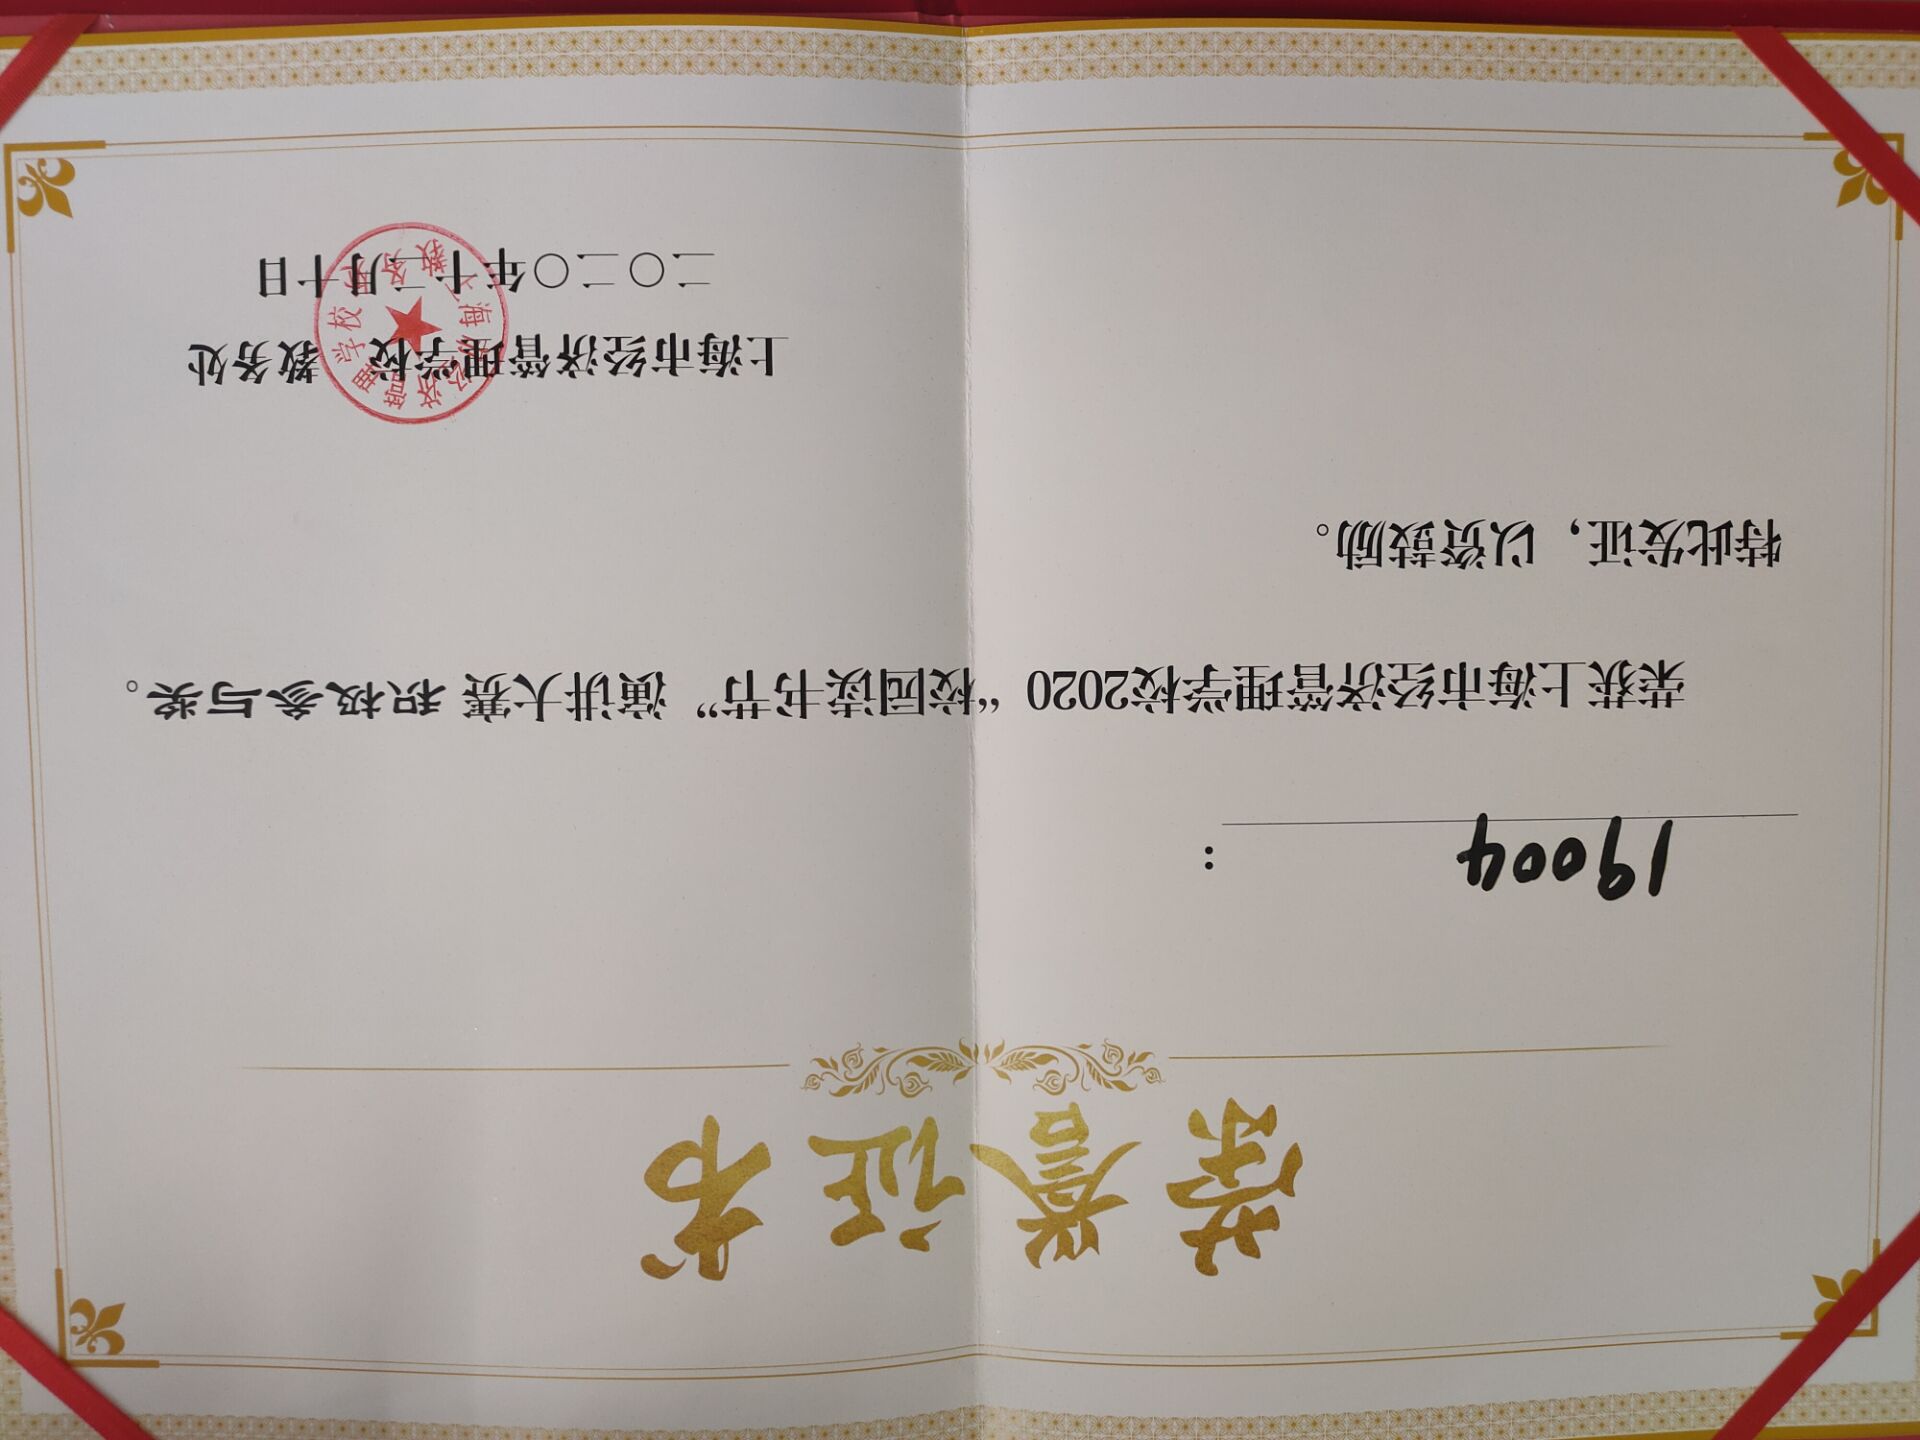 荣誉证书
19004：
荣获上海市经济管理学校2020“校园读书节”演讲大赛 积极参与奖。
特此发证，以资鼓励。
上海市经济管理学校 教务处
二〇二〇年十二月十日
上海市经济管理学校
教务处